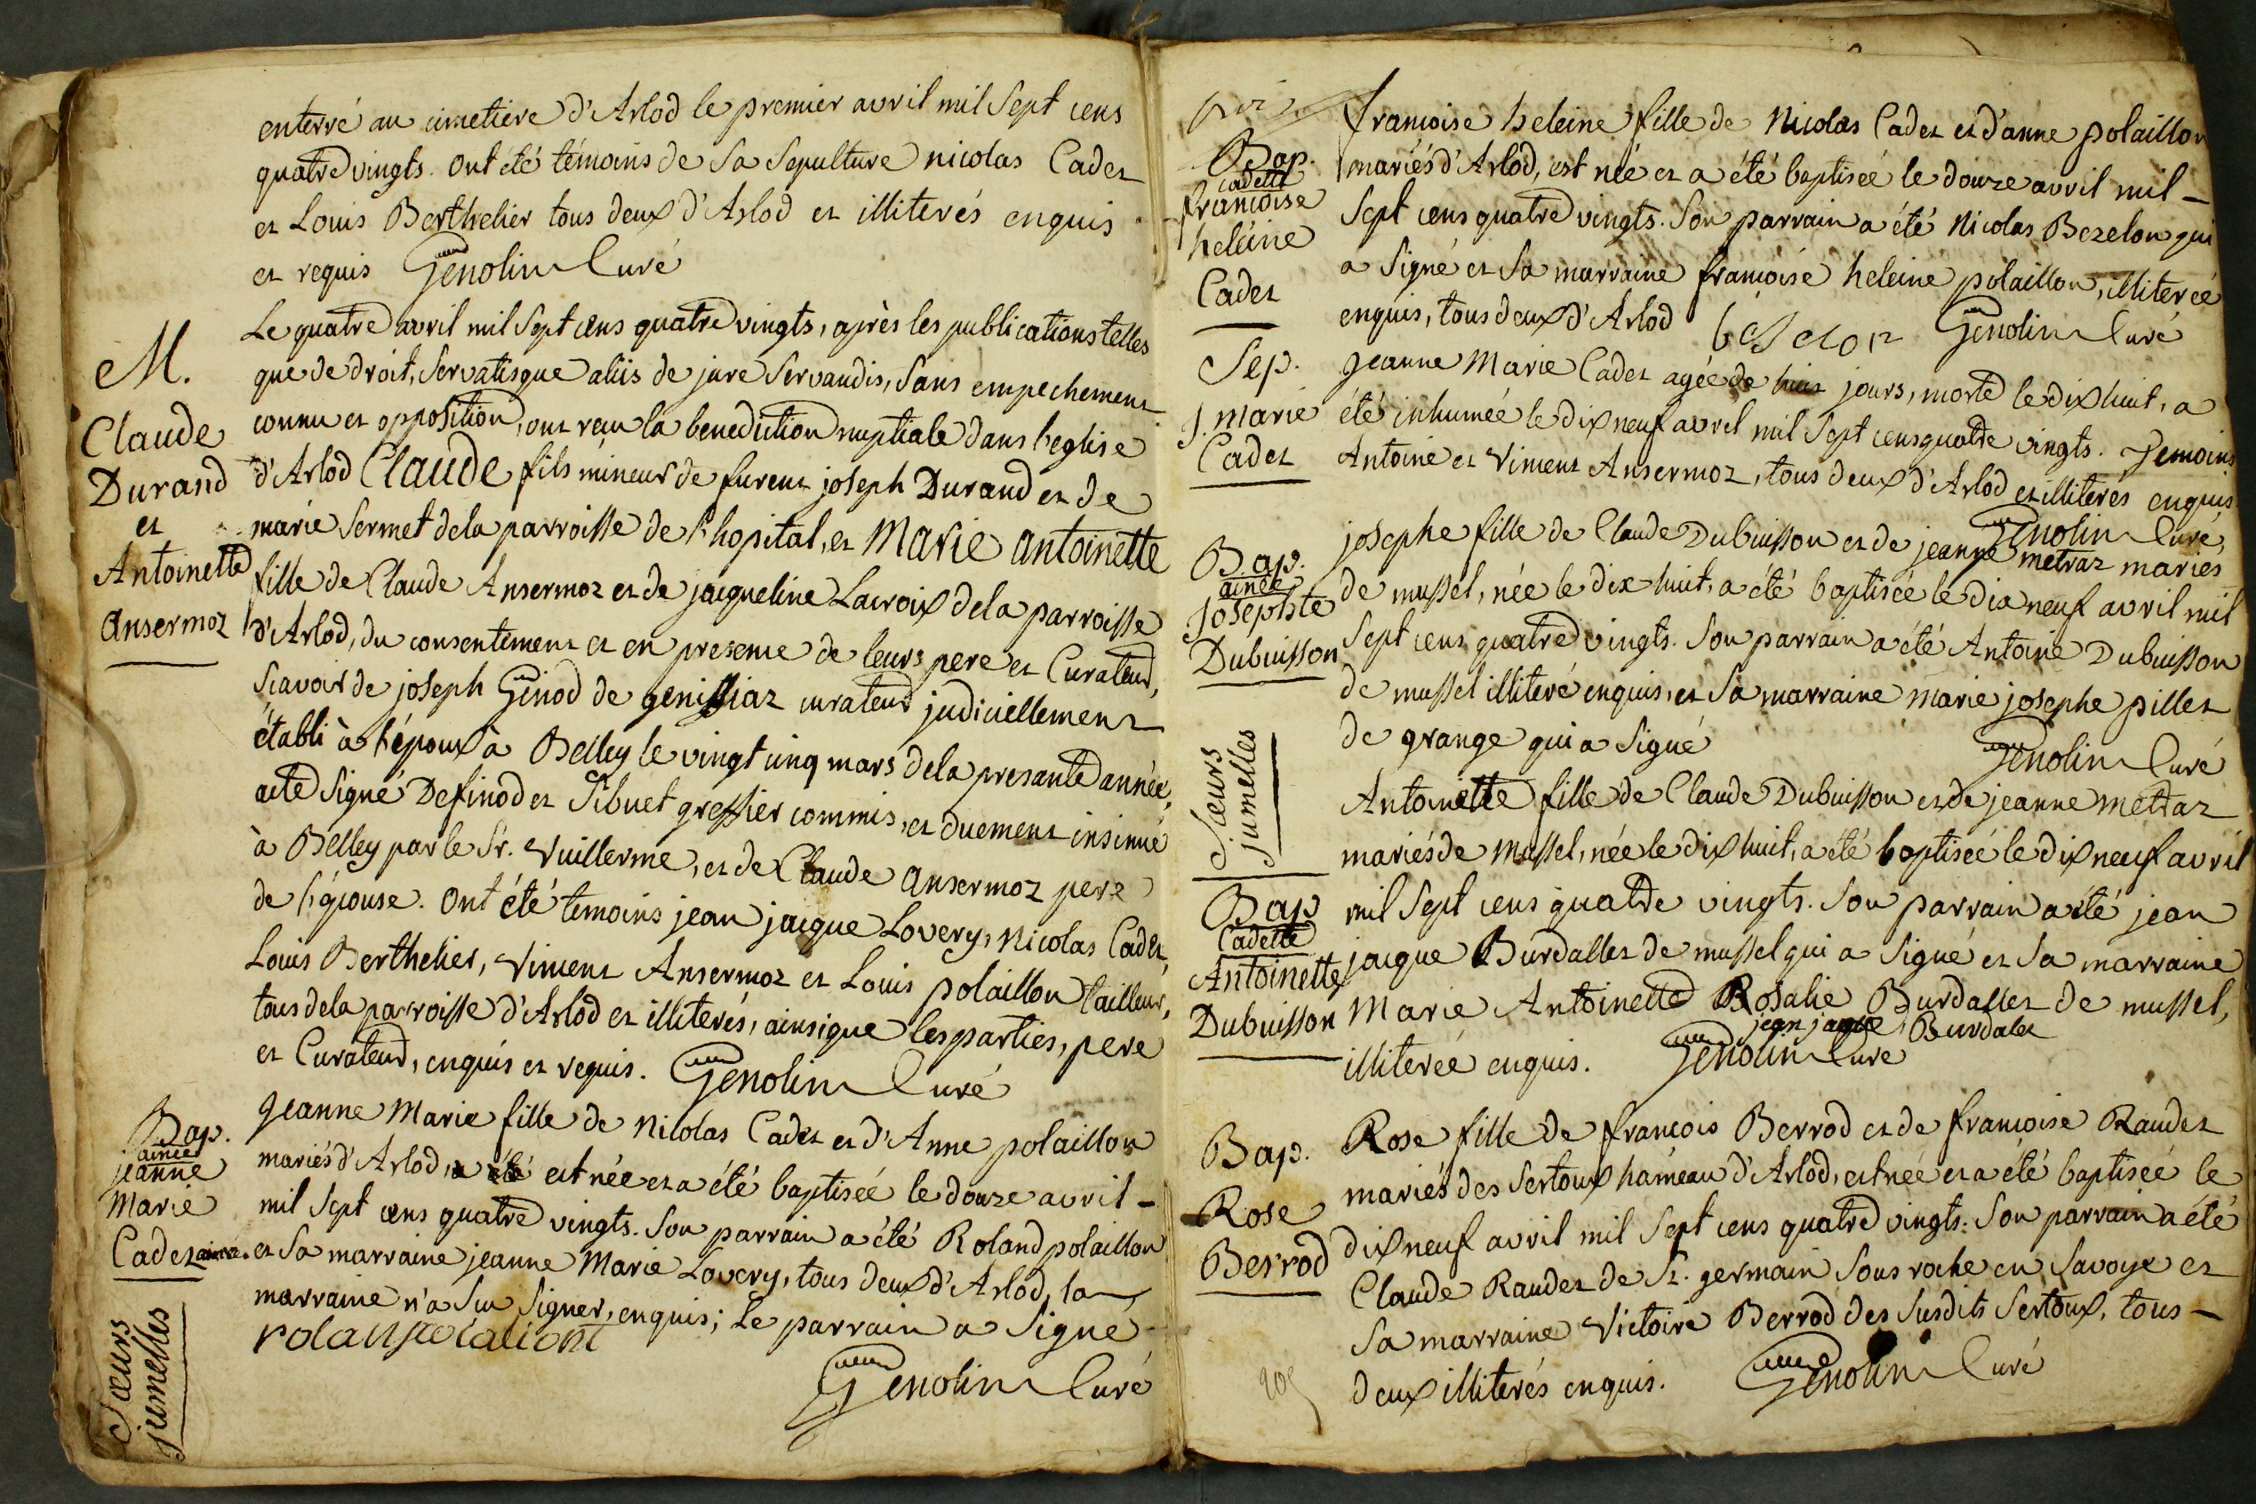 enterré au cimetiere d'Arlod le premier avril mil Sept cens
quatre vingts. Ont été témoins de Sa Sepulture nicolas Cadet
et Louis Berthelier tous deux d'Arlod et illiterés enquis
et requis Genolin Curé
M.
Claude
Durand
et
Antoinette
ansermoz
Le quatre avril mil Sept cens quatre vingts, après les publications telles
que de droit, Servatisque aliis de jure Servandis, Sans empechement
connu et opposition, ont reçu la benediction nuptiale dans l'eglise
d'Arlod Claude fils mineur de furent joseph Durand et de
marie Sermet de la parroisse de l'hopital, et Marie antoinette
fille de Claude Ansermoz et de jacqueline Lacroix de la parroisse
d'Arlod, du consentement et en presence de leurs pere et Curateur,
Sçavoir de joseph Ginod de genissiaz curateur judiciellement
établi à l'époux à Belley le vingt cinq mars de la presante année,
acte Signé Definod et Sibuet greffier commis, et duement insinué
à Belley par le Sr. Vuillerme, et de Claude ansermoz pere
de l'épouse. Ont été temoins jean jacque Lovery, Nicolas Cadet,
Louis Berthelier, Viment Ansermoz et Louis polaillon tailleur,
tous de la parroisse d'Arlod et illiterés, ainsi que les parties, pere
et Curateur, enquis et requis. Genolin Curé
Bap.
ainée
jeanne
Marie
Cadet ainée.
Sœurs
jumelles
Jeanne Marie fille de Nicolas Cadet et d'Anne polaillon
mariés d'Arlod, a été est née et a été baptiseé le douze avril -
mil Sept cens quatre vingts. Son parrain a été Roland polaillon
et Sa marraine jeanne Marie Lovery, tous deux d'Arlod, la
marraine n'a Sçu Signer, enquis; Le parrain a Signé
Genolin Curé
Bap.
cadette
françoise
heleine
Cadet
françoise heleine fille de Nicolas Cadet et d'anne polaillon
mariés d'Arlod, est neé et a été baptiseé le douze avril mil -
Sept cens quatre vingts. Son parrain a été Nicolas Bezelon qui
a Signé et Sa marraine françoise heleine polaillon, illitereé
enquis, tous deux d'Arlod Genolin Curé
Sep.
J. Marie
Cadet
Jeanne Marie Cadet ageé de huit jours, morte le dix huit, a
été inhumeé le dix neuf avril mil Sept cens quatre vingts. Temoins
Antoine et Viment Ansermoz, tous deux d'Arlod et illiterés enquis
Genolin Curé,
Bap.
ainée
Josephte
Dubuisson
Sœurs
jumelles
josephe fille de Claude Dubuisson et de jeanne metraz mariés
de mussel, née le dix huit, a été baptiseé le dix neuf avril mil
Sept cens quatre vingts. Son parrain a été Antoine Dubuisson
de mussel illiteré enquis, et Sa marraine Marie josephe pillet
de grange qui a Signé
Genolin Curé
Bap
Cadette
Antoinette
Dubuisson
Antoinette fille de Claude Dubuisson et de jeanne metraz
mariés de Mussel, née le dix huit, a été baptiseé le dix neuf avril
mil Sept cens quatre vingts. Son parrain a été jean
jacque Burdallet de mussel qui a Signé et Sa marraine
Marie Antoinette Rosalie Burdallet de mussel,
jean jaque Burdalet
illitereé enquis. Genolin Curé
Bap.
Rose
Berrod
Rose fille de françois Berrod et de françoise Raudet
mariés des Sertoux hameau d'Arlod, est neé et a été baptiseé le
dix neuf avril mil Sept cens quatre vingts. Son parrain a été
Claude Raudet de St. germain Sous roche en Savoye et
Sa marraine Victoire Berrod des Susdits Sertoux, tous -
deux illiterés enquis. Genolin Curé